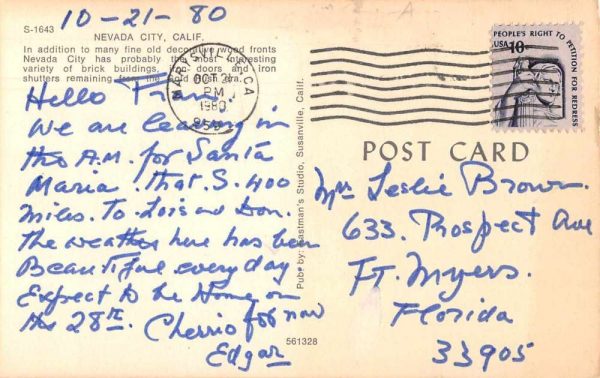 10-21-80
S-1643
NEVADA CITY, CALIF.
In addition to many fine old decorative wood fronts
Nevada City has probably the most interesting
variety of brick buildings, doors and iron
shutters remaining from the gold
Hello Fran.
We are leaving in
the A.M. for Santa
Maria. that S. 400
miles. To Lois and Don.
the weather here has been
Beautiful every day.
Expect to be Home on
the 28th. Cherrio for now
Edgar
MARYSVILLE, CA
OCT 21
PM
1980
959
PEOPLE'S RIGHT TO PETITION FOR REDRESS
USA 10c
POST CARD
Mr. Leslie Brown.
633. Prospect Ave
Ft. Myers.
Florida
33905
Pub. by: Eastman's Studio, Susanville, Calif.
561328